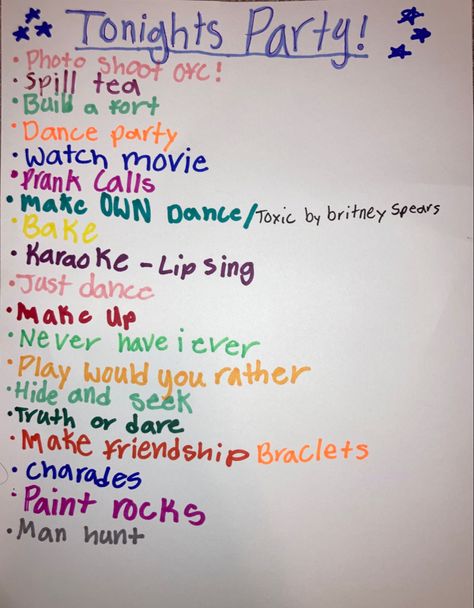 Tonights Party!
• Photo shoot ofc!
• Spill tea
• Build a fort
• Dance party
• Watch movie
• Prank Calls
• make OWN Dance/Toxic by britney Spears
• Bake
• Karaoke - Lip sing
• Just dance
• Make Up
• Never have i ever
• Play would you rather
• Hide and seek
• Truth or dare
• Make friendship Braclets
• charades
• Paint rocks
• Man hunt